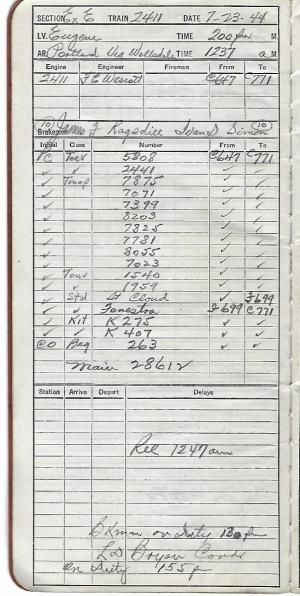 SECTION Ex E TRAIN 2411 DATE 7-23-44
LV. Eugene TIME 200 pm M.
AR. Portland Via Wellsdale TIME 1237 a M.
Engine Engineer Fireman From To
2411 J E Wescott C647 C771
Brakemen Ragsdill Island Simon
Initial Class Number From To
PC Tour 5808 C647 C771
✓ ✓ 2441 ✓ ✓
✓ Troop 7875 ✓ ✓
✓ ✓ 7071 ✓ ✓
✓ ✓ 7399 ✓ ✓
✓ ✓ 8203 ✓ ✓
✓ ✓ 7825 ✓ ✓
✓ ✓ 7781 ✓ ✓
✓ ✓ 8055 ✓ ✓
✓ ✓ 7023 ✓ ✓
✓ Tour 1540 ✓ ✓
✓ ✓ 1959 ✓ ✓
✓ Std St Cloud ✓ F699
✓ ✓ Fenestra F699 C771
✓ Kit K 275 ✓ ✓
✓ ✓ K 407 ✓ ✓
CO Bag 263 ✓ ✓
Main 28612
Station Arrive Depart Delays
Rel 1247 am
Bkmn on Duty 130 pm
L D Bryan Condr
on Duty 155 p